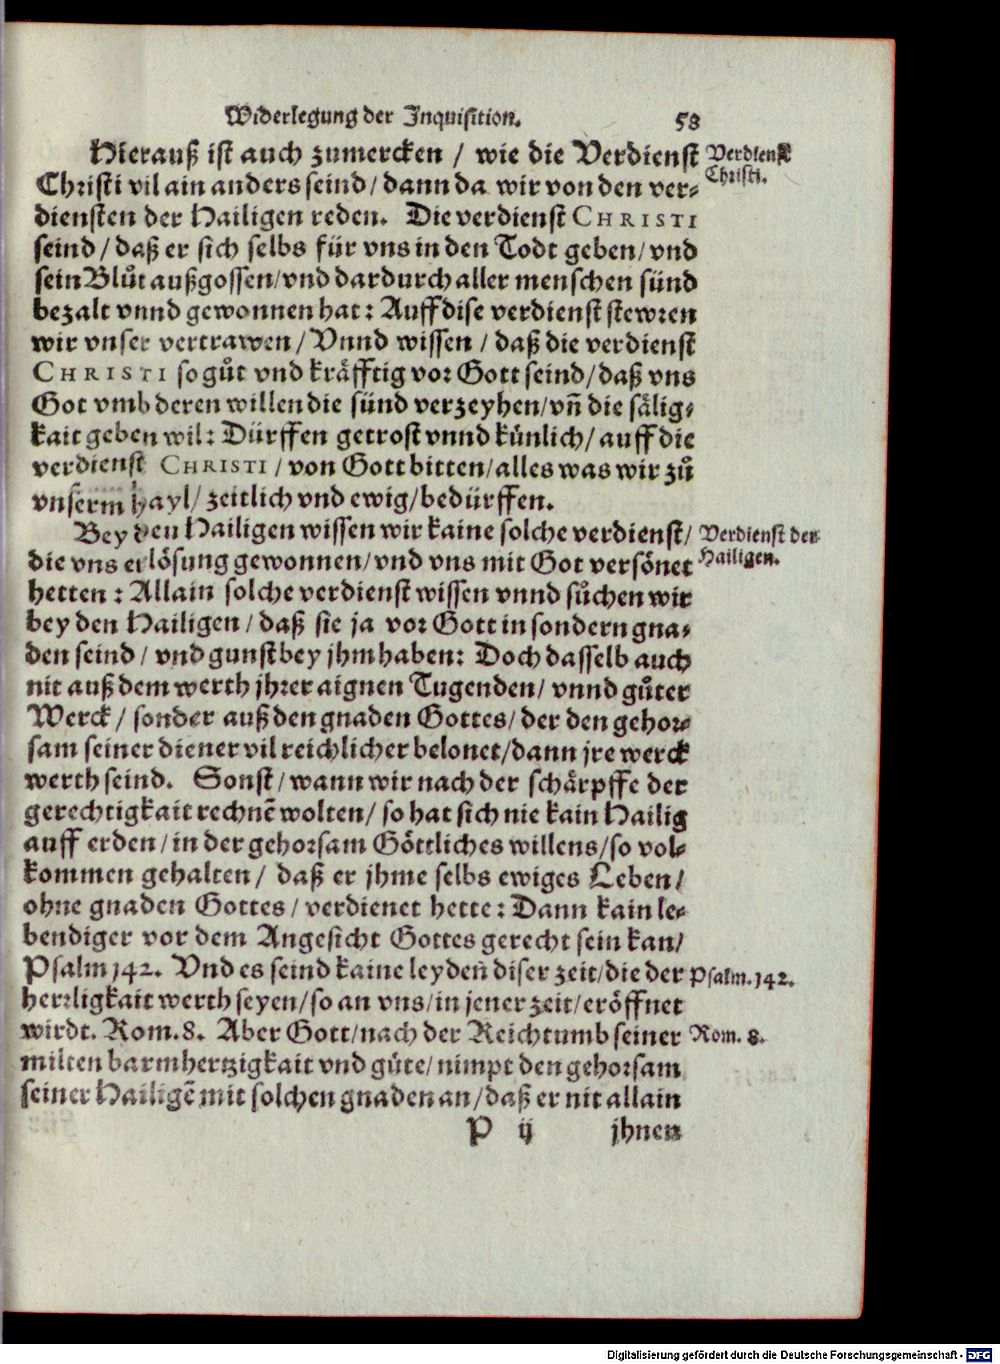 Widerlegung der Inquisition. 58
Hierauß ist auch zumercken / wie die Verdienst
Verdienst
Christi.
Christi vil ain anders seind / dann da wir von den ver⸗
diensten der Hailigen reden. Die verdienst CHRISTI
seind / daß er sich selbs für vns in den Todt geben / vnd
sein Blůt außgossen / vnd dardurch aller menschen sünd
bezalt vnnd gewonnen hat: Auff dise verdienst stewren
wir vnser vertrawen / Vnnd wissen / daß die verdienst
CHRISTI so gůt vnd kräfftig vor Gott seind / daß vns
Got vmb deren willen die sünd verzeyhen / vñ die sälig⸗
kait geben wil: Dürffen getrost vnnd künlich / auff die
verdienst CHRISTI / von Gott bitten / alles was wir zů
vnserm hayl / zeitlich vnd ewig / bedürffen.
Bey den Hailigen wissen wir kaine solche verdienst /
Verdienst der
Hailigen.
die vns erlösung gewonnen / vnd vns mit Got versönet
hetten: Allain solche verdienst wissen vnnd sůchen wir
bey den Hailigen / daß sie ja vor Gott in sondern gna⸗
den seind / vnd gunst bey jhm haben: Doch dasselb auch
nit auß dem werth jhrer aignen Tugenden / vnnd gůter
Werck / sonder auß den gnaden Gottes / der den gehor⸗
sam seiner diener vil reichlicher belonet / dann jre werck
werth seind. Sonst / wann wir nach der schärpffe der
gerechtigkait rechnē wolten / so hat sich nie kain Hailig
auff erden / in der gehorsam Göttliches willens / so vol⸗
kommen gehalten / daß er jhme selbs ewiges Leben /
ohne gnaden Gottes / verdienet hette: Dann kain le⸗
bendiger vor dem Angesicht Gottes gerecht sein kan /
Psalm 142. Vnd es seind kaine leyden diser zeit / die der
Psalm. 142.
herrligkait werth seyen / so an vns / in jener zeit / eröffnet
wirdt. Rom. 8. Aber Gott / nach der Reichtumb seiner
Rom. 8.
milten barmhertzigkait vnd gůte / nimpt den gehorsam
seiner Hailigē mit solchen gnaden an / daß er nit allain
P ij jhnen
Digitalisierung gefördert durch die Deutsche Forschungsgemeinschaft - DFG